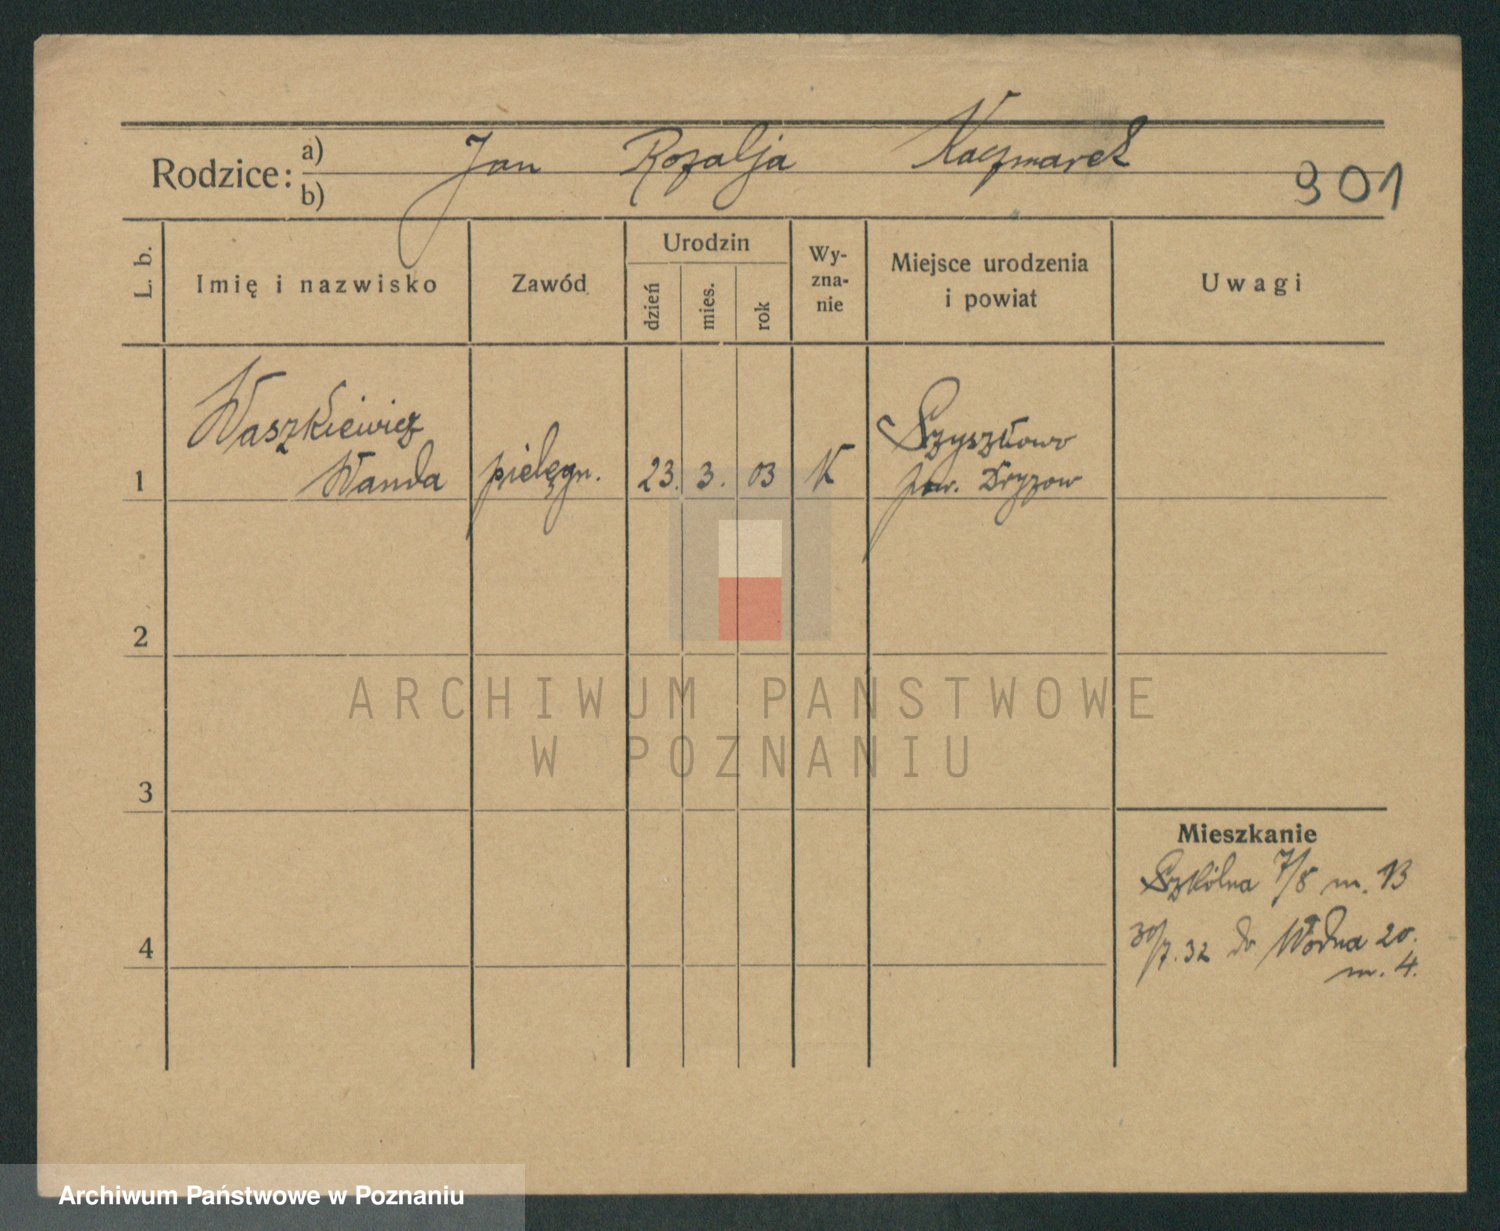 Rodzice: a) Jan Rozalja Kaczmarek
b)
901
L. b.
Imię i nazwisko
Zawód
Urodzin
dzień
mies.
rok
Wy-
zna-
nie
Miejsce urodzenia
i powiat
Uwagi
Waszkiewicz
Wanda
1
pielęgn.
23. 3. 03
K
Szyszłowo
pow.
2
3
4
Mieszkanie
Szkólna 7/8 m. 13
30/7. 32 do Wodna 20.
m. 4.
ARCHIWUM PANSTWOWE
W POZNANIU
Archiwum Państwowe w Poznaniu